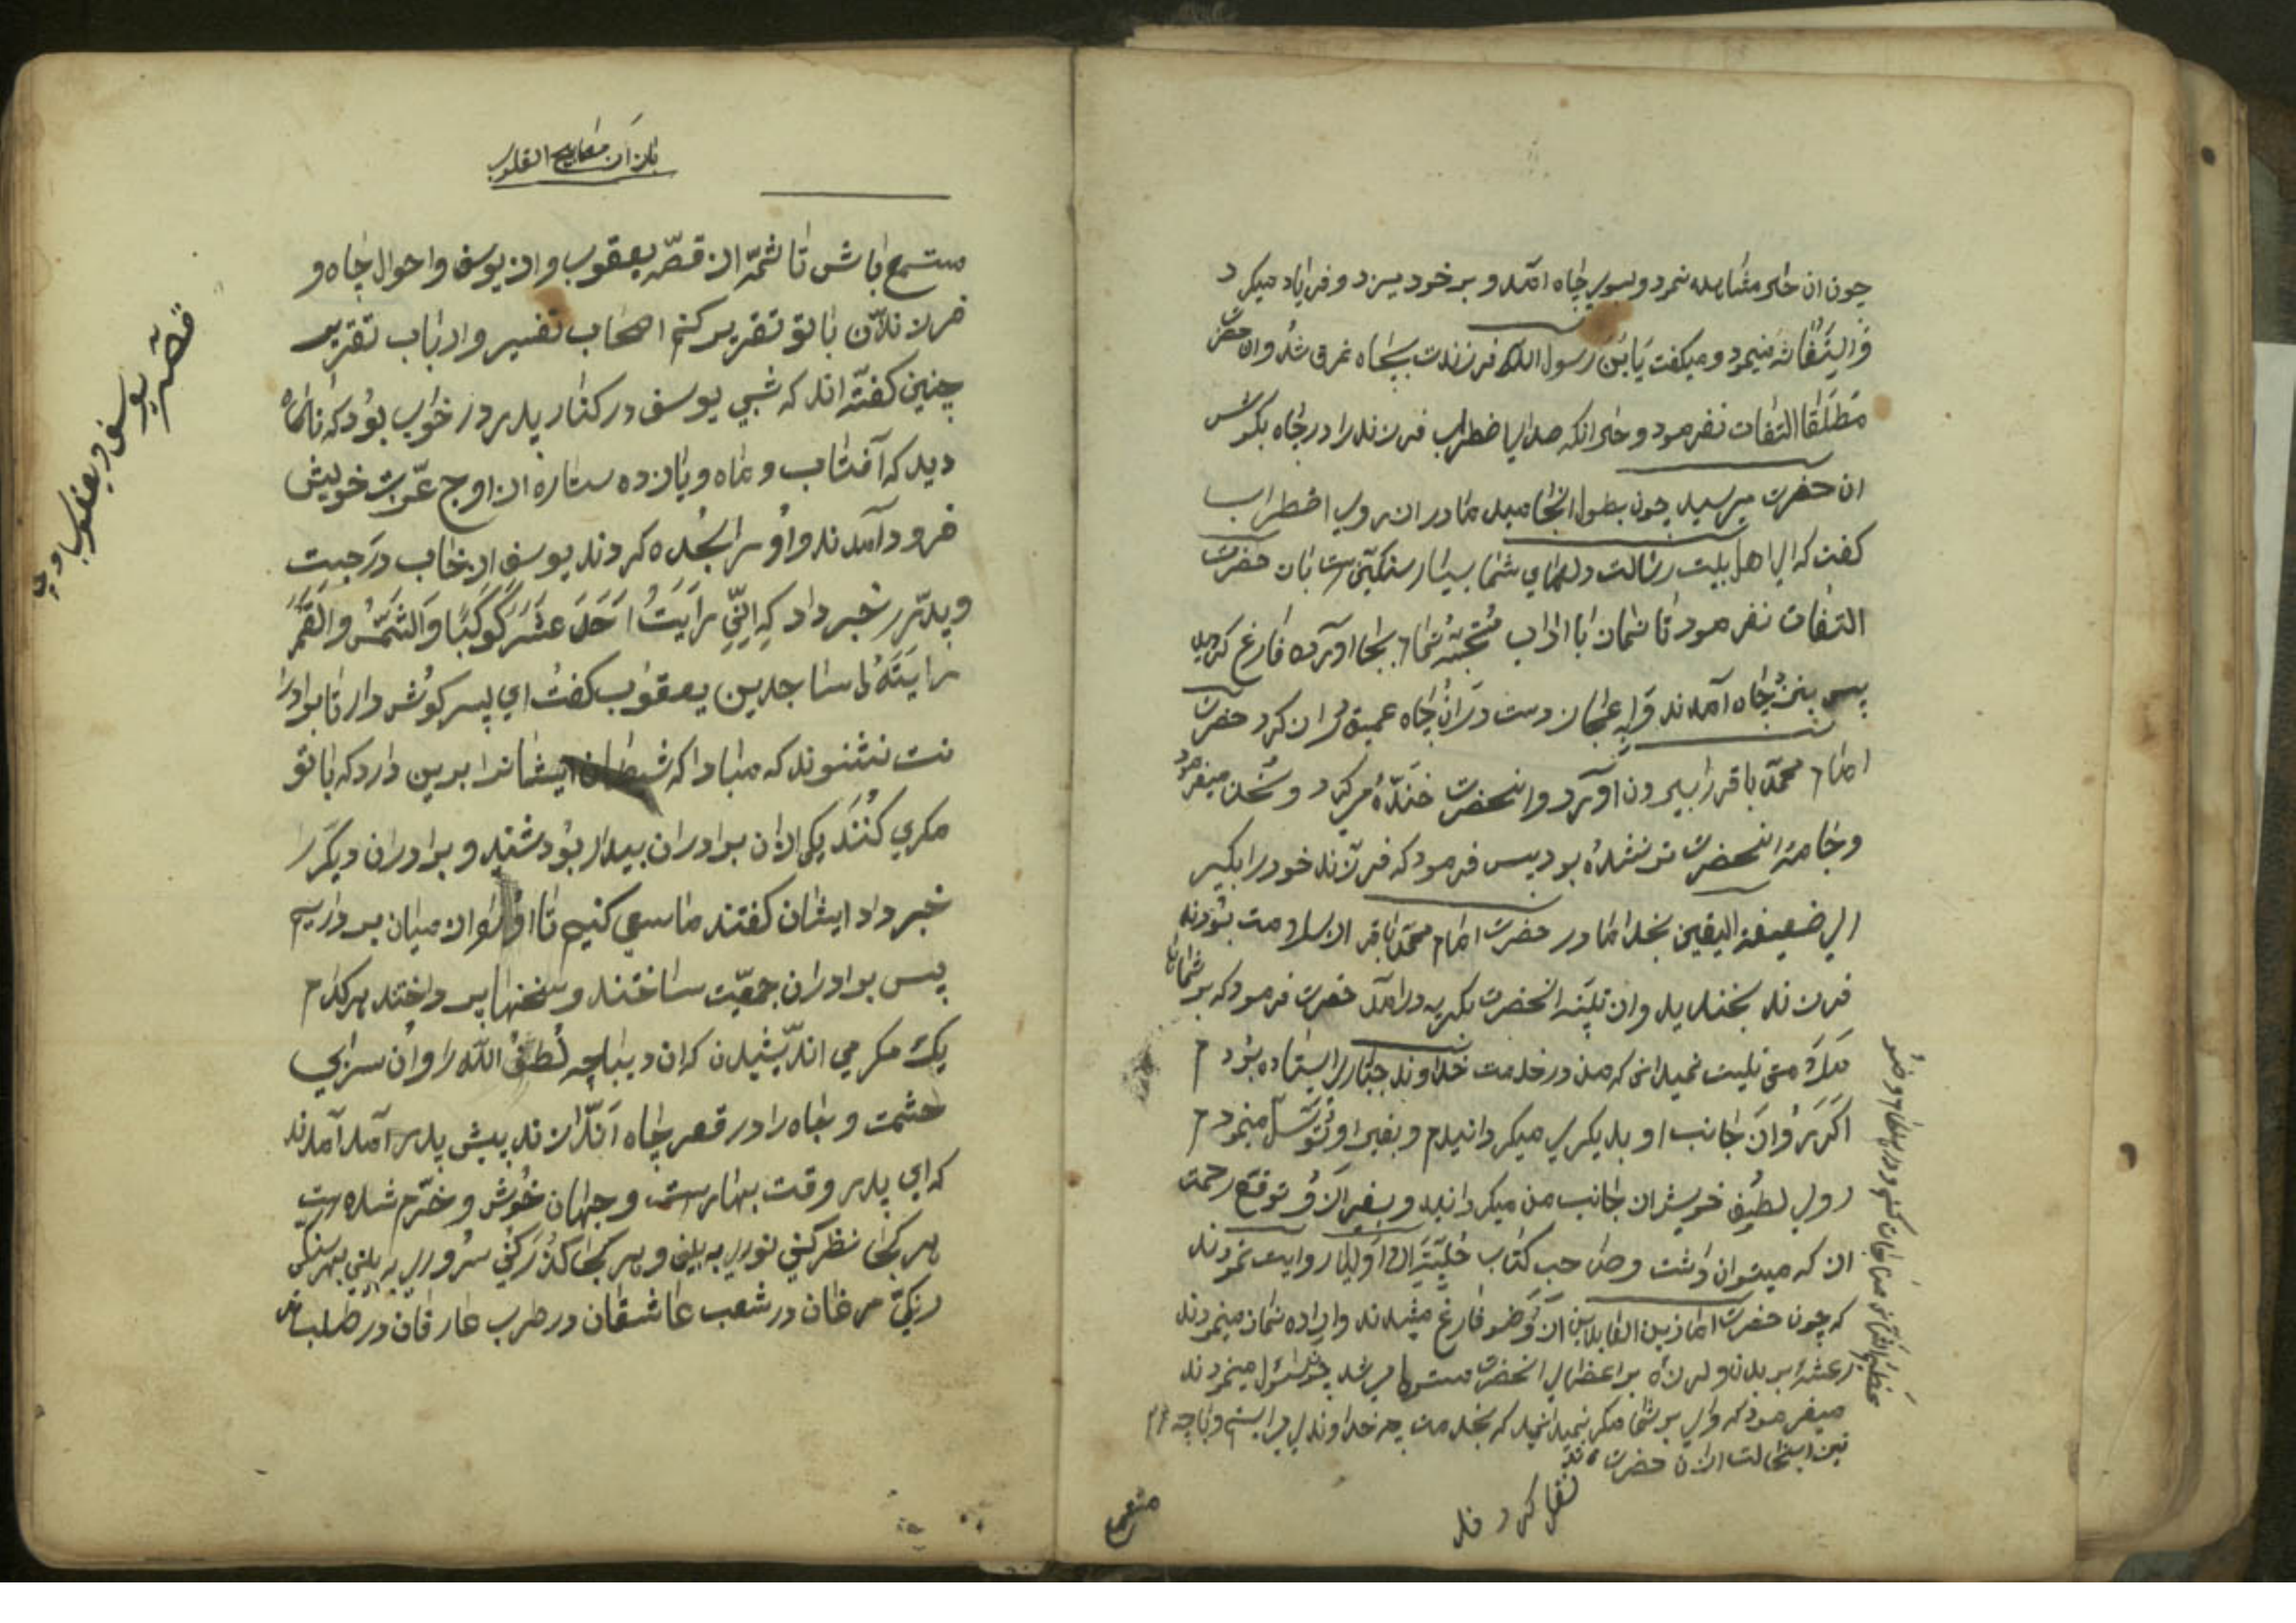 چون ان حال مشاهده نمود و بسوی چاه آمد و بر خود میزد و فریاد میکرد
و الیتفاثه مینمود و میکفت یابن رسول الله فرزندت بچاه غرق شد و ان حضرت
مطلقا التفات نفرمود و حال انکه صدای اضطراب فرزند را در چاه بکوش
ان حضرت میرسید چون بطول انجامید مادر ان روی اضطراب
کفت که ای اهل بیت رسالت دلهای شما بسیار سنکین است بان حضرت
التفات نفرمود تا نماز با اداب بجا اورده فارغ کردید
پس بنزد چاه آمدند و دست دران چاه عمیق دران کرد حضرت
امام محمد باقر را بیرون آورد و انحضرت خنده میکرد و سخن میفرمود
و جامه انحضرت تر نشده بود پس فرمود که فرزند خود را بکیر
ای ضعیفة الیقین بخدا مادر حضرت امام محمد باقر از سلامت بودند
فرزند بخندید و ان انحضرت بکریه درامد حضرت فرمود که بر شما
ملامتی نیست نمیدانی که من در خدمت خداوند جباری ایستاده بودم
اکر روان جانب او بدیکری میکردانیدم و بغیر او توسل مینمودم
روی لطیف خویش از جانب من میکردانید و بغیر ان و توقع رحمت
از که میتوان داشت و صاحب کتاب حلیة الاولیا روایت نمودند
که چون حضرت امام زین العابدین از وضو فارغ میشدند و اراده نماز مینمودند
رعشه بر بدن و لرزه بر اعضای انحضرت مستولی میشد چون سئوال مینمودند
میفرمود که وای بر شما مکر نمیدانید که بخدمت چه خداوندی می ایستم و با چه
نین این حالت از ان حضرت
نقل کرده اند
مستمع
باز ان مصابیح القلوب
مستمع باش تا شمه از قصه یعقوب و از یوسف و احوال چاه و
فرزندان با تو تقریر کنم اصحاب تفسیر و ارباب تقریر
چنین کفته اند که شبی یوسف در کنار پدر در خواب بود که ناکاه
دید که آفتاب و ماه و یازده ستاره از اوج عزت خویش
فرود آمدند و او را سجده کردند یوسف از خاب درجست
و پدر را خبر داد که اِنّی رَاَیتُ اَحَدَ عَشَرَ کَوکَبًا وَالشَّمسُ وَالقَمَرَ
رایتهم لی ساجدین یعقوب کفت ای پسر کوش دار تا برادرا
نت نشنوند که مبادا که شیطان ایشانرا برین دارد که با تو
مکری کُنَند یکی از ان برادران بیدار بود شنید و برادران دیکر را
خبر داد ایشان کفتند ما سعی کنیم تا او را از میان برداریم
پس برادران جمعیت ساختند و سخنها پرداختند هر کدام
یک مکر می اندیشیدن که ان دیباچه لطف الله را و ان سرای
حشمت و جاه را در قعر چاه اندازند پیش پدر آمد آمدند
که ای پدر وقت بهارست و جهان خوش و خرم شده است
هر کجا نظر کنی نوری به بینی و هر کجا کذر کنی سروری به بینی بهر سنکی
رنکی مرغان در شعب عاشقان در طرب عارفان در طلب
قصه یوسف و یعقوب